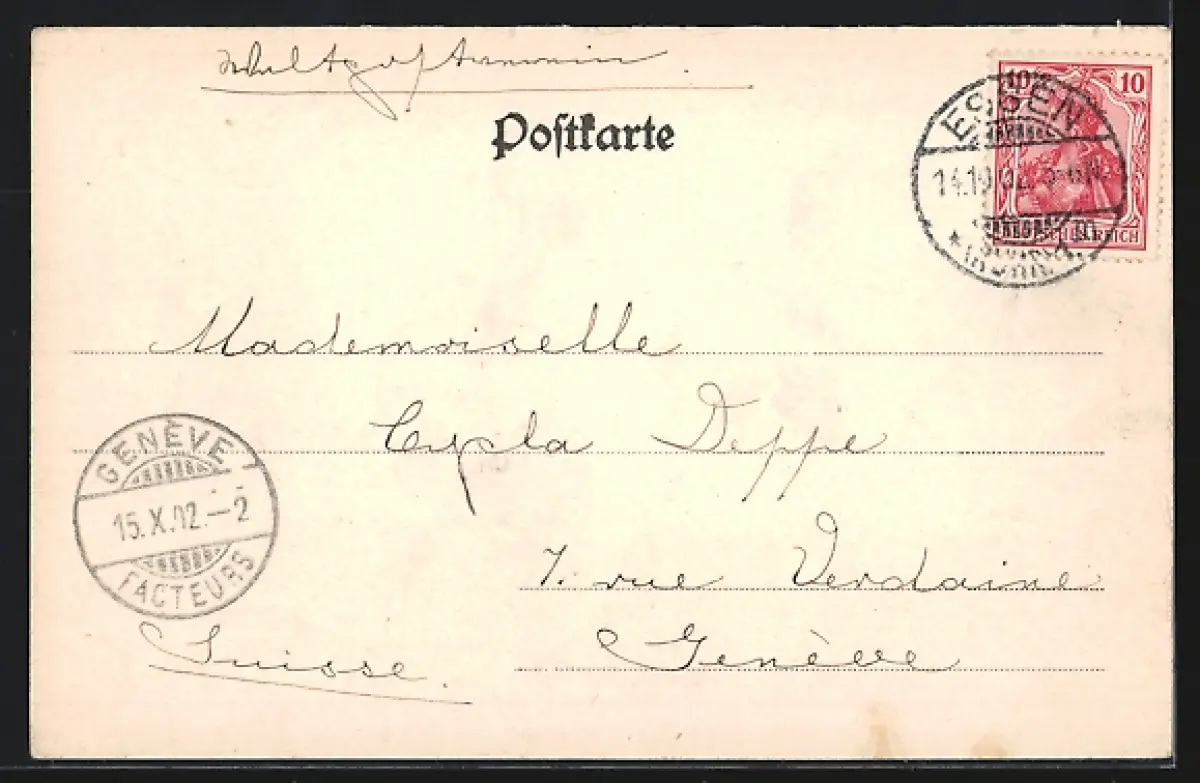 Weltpostverein.
Postkarte
10 10
ESSEN
14.10.02.
DEUTSCHES REICH
Mademoiselle
Deppe
GENÈVE
15.X.02.–2
FACTEURS
7. rue Verdaine
Genève
Suisse.